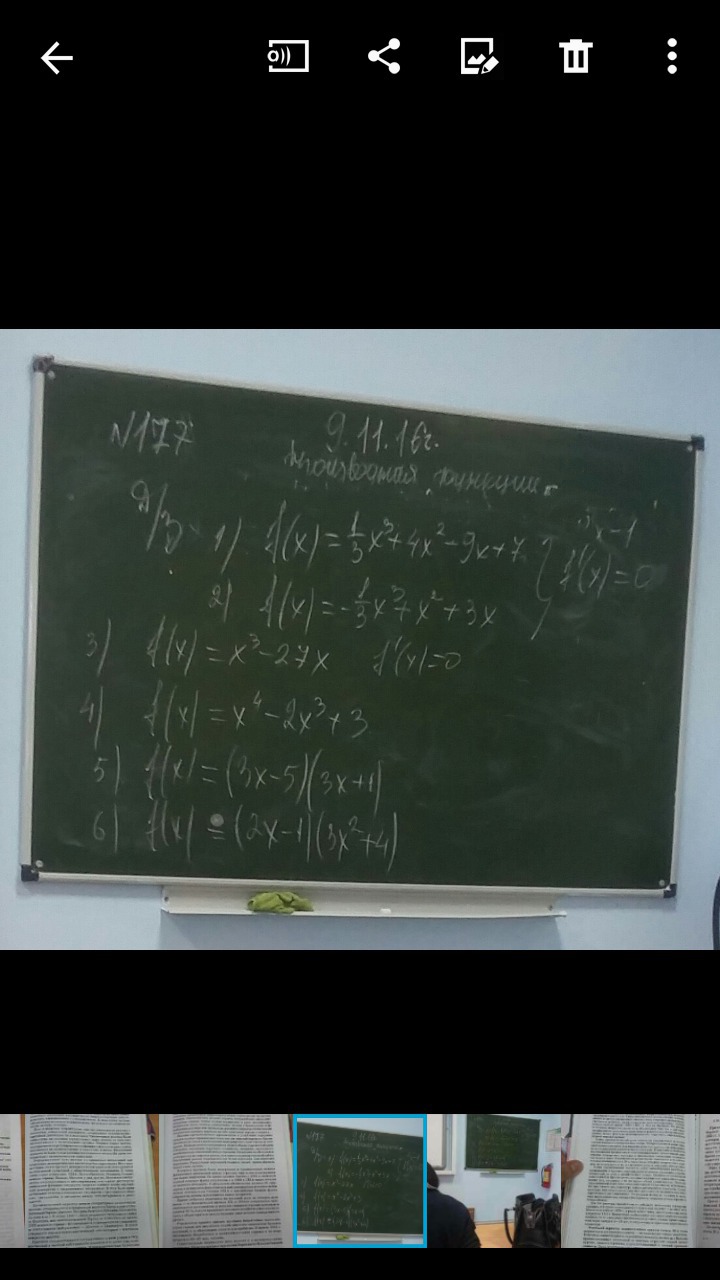 N177
9.11.16г.
Производная функции.
Д/З
1) f(x) = 1/3x³ + 4x² - 9x + 7
f'(x) = 0
2) f(x) = -1/3x³ + x² + 3x
3) f(x) = x³ - 27x f'(x) = 0
4) f(x) = x⁴ - 2x³ + 3
5) f(x) = (3x-5)(3x+1)
6) f(x) = (2x-1)(3x²+4)